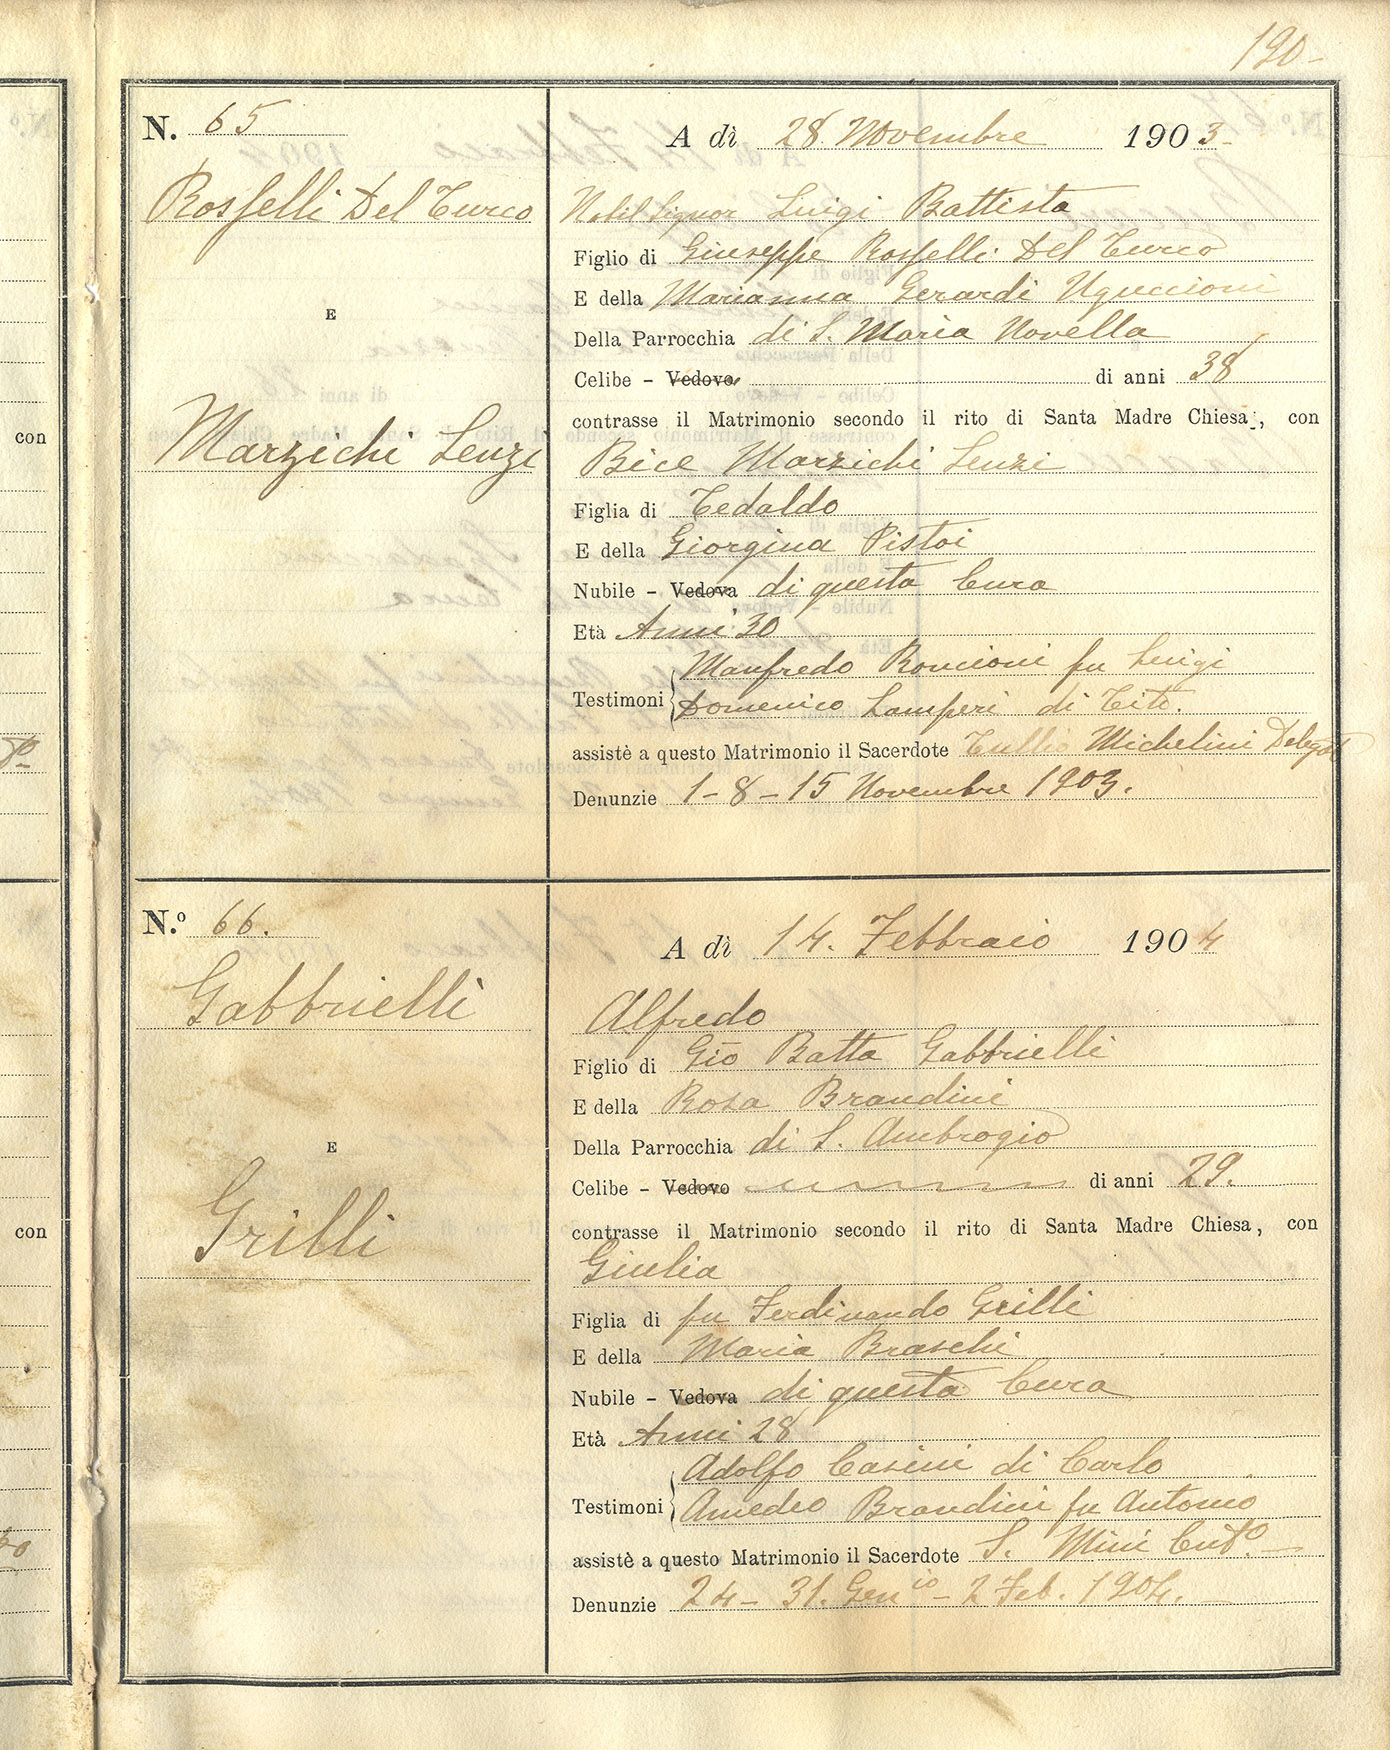 190-
N. 65
Rosselli Del Turco
E
Marzichi Lenzi
A dì 28. Novembre 1903-
Nobil Signor Luigi Battista
Figlio di Giuseppe Rosselli Del Turco
E della Marianna Gerardi Uguccioni
Della Parrocchia di S. Maria Novella
Celibe - Vedovo di anni 38
contrasse il Matrimonio secondo il rito di Santa Madre Chiesa, con
Bice Marzichi Lenzi
Figlia di Tedaldo
E della Giorgina Pistoi
Nubile - Vedova di questa Cura
Età Anni 30
Testimoni Manfredo Roncioni fu Luigi
Domenico Lamperi di Tito.
assistè a questo Matrimonio il Sacerdote Tullio Michelini Delegato
Denunzie 1-8-15 Novembre 1903.
N.º 66.
Gabbrielli
E
Grilli
A dì 14. Febbraio 1904
Alfredo
Figlio di Gio Batta Gabbrielli
E della Rosa Brandini
Della Parrocchia di S. Ambrogio
Celibe - Vedovo di anni 29.
contrasse il Matrimonio secondo il rito di Santa Madre Chiesa, con
Giulia
Figlia di fu Ferdinando Grilli
E della Maria Braschi
Nubile - Vedova di questa Cura
Età Anni 28
Testimoni Adolfo Casini di Carlo
Amedeo Brandini fu Antonio
assistè a questo Matrimonio il Sacerdote S. Mini
Denunzie 24- 31. Genio - 2 Feb. 1904.
con
con